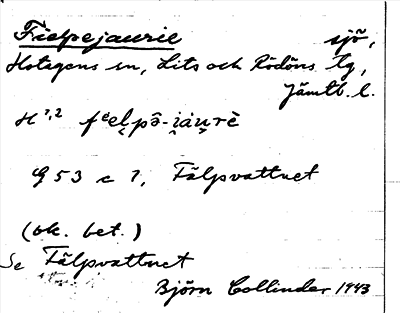 Fielpejaurie sjö,
Hotagens sn, Lits och Rödöns tg,
Jämtl. l.
H 1,2 fᵉel̯pə̑-i̯äu̯rē
G 53 c 7, Fälpvattnet
(ok. bet.)
Se Fälpvattnet
Björn Collinder 1943